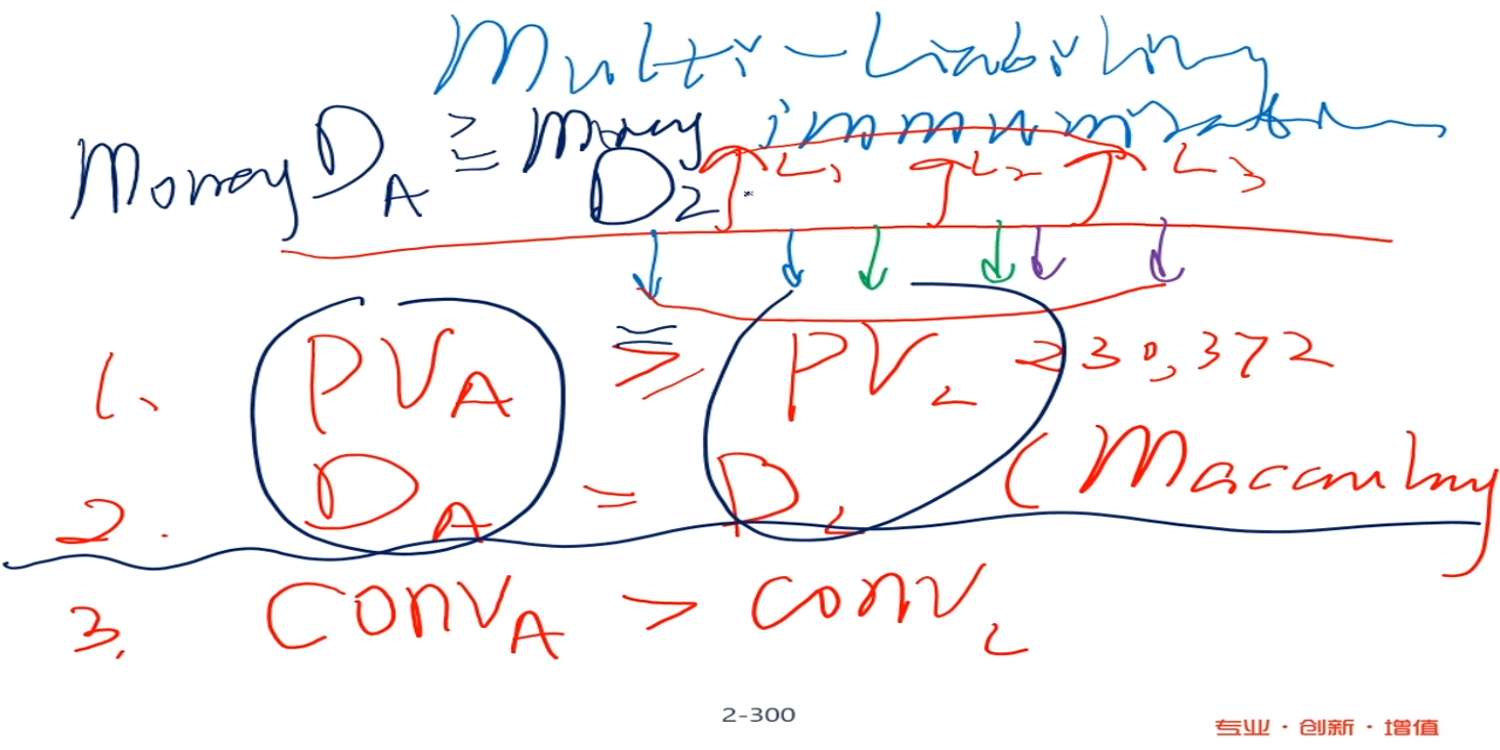 Multi-Liability
Money D_A ≥ Money D_2 immunization
L_1 L_2 L_3
1. PV_A ≥ PV_L 230,372
2. D_A = D_L (Macaulay
3. conv_A > conv_L
2-300
专业·创新·增值